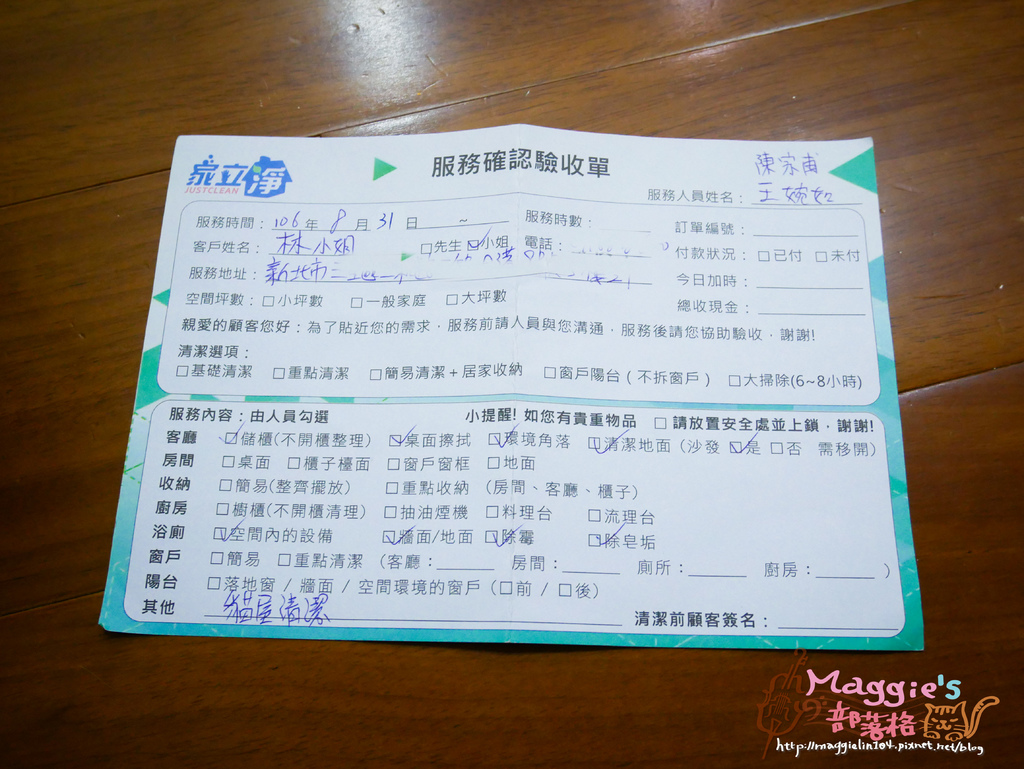 家立淨
JUSTCLEAN
服務確認驗收單
陳家甫
服務人員姓名：王婉如
服務時間：106年 8 月 31 日 ~
服務時數：
訂單編號：
客戶姓名：林小姐 □先生 ☑小姐 電話：
付款狀況：□已付 □未付
服務地址：新北市三
今日加時：
空間坪數：□小坪數 □一般家庭 □大坪數
總收現金：
親愛的顧客您好：為了貼近您的需求，服務前請人員與您溝通，服務後請您協助驗收，謝謝!
清潔選項：
□基礎清潔 □重點清潔 □簡易清潔+居家收納 □窗戶陽台(不拆窗戶) □大掃除(6~8小時)
服務內容：由人員勾選 小提醒! 如您有貴重物品 □請放置安全處並上鎖，謝謝!
客廳 ☑儲櫃(不開櫃整理) ☑桌面擦拭 ☑環境角落 ☑清潔地面 (沙發 ☑是 □否 需移開)
房間 □桌面 □櫃子檯面 □窗戶窗框 □地面
收納 □簡易(整齊擺放) □重點收納 (房間、客廳、櫃子)
廚房 □櫥櫃(不開櫃清理) □抽油煙機 □料理台 □流理台
浴廁 ☑空間內的設備 ☑牆面/地面 ☑除霉 ☑除皂垢
窗戶 □簡易 □重點清潔 (客廳： 房間： 廁所： 廚房： )
陽台 □落地窗 / 牆面 / 空間環境的窗戶 (□前 / □後)
其他 貓屋清潔 清潔前顧客簽名：
Maggie's
部落格
http://maggielin104.pixnet.net/blog